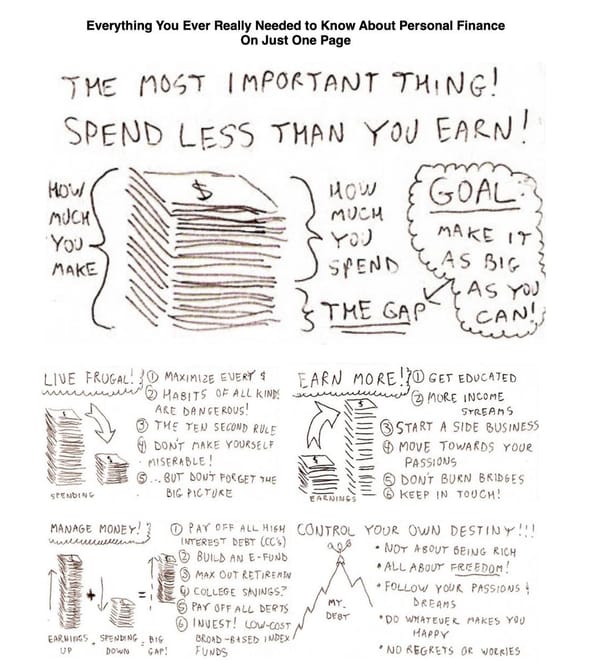 Everything You Ever Really Needed to Know About Personal Finance
On Just One Page
THE MOST IMPORTANT THING!
SPEND LESS THAN YOU EARN!
HOW
MUCH
YOU
MAKE
$
HOW
MUCH
YOU
SPEND
THE GAP
GOAL:
MAKE IT
AS BIG
AS YOU
CAN!
LIVE FRUGAL!
① MAXIMIZE EVERY $
② HABITS OF ALL KIND
ARE DANGEROUS!
③ THE TEN SECOND RULE
④ DON'T MAKE YOURSELF
MISERABLE!
⑤ ...BUT DON'T FORGET THE
BIG PICTURE
SPENDING
EARN MORE!
① GET EDUCATED
② MORE INCOME
STREAMS
③ START A SIDE BUSINESS
④ MOVE TOWARDS YOUR
PASSIONS
⑤ DON'T BURN BRIDGES
⑥ KEEP IN TOUCH!
EARNINGS
MANAGE MONEY!
① PAY OFF ALL HIGH
INTEREST DEBT (CC'S)
② BUILD AN E-FUND
③ MAX OUT RETIREMEN
④ COLLEGE SAVINGS?
⑤ PAY OFF ALL DEBTS
⑥ INVEST! LOW-COST
BROAD-BASED INDEX
FUNDS
+
=
EARNINGS
UP
+
SPENDING
DOWN
=
BIG
GAP!
CONTROL YOUR OWN DESTINY!!!
MY
DEBT
• NOT ABOUT BEING RICH
• ALL ABOUT FREEDOM!
• FOLLOW YOUR PASSIONS &
DREAMS
• DO WHATEVER MAKES YOU
HAPPY
• NO REGRETS OR WORRIES